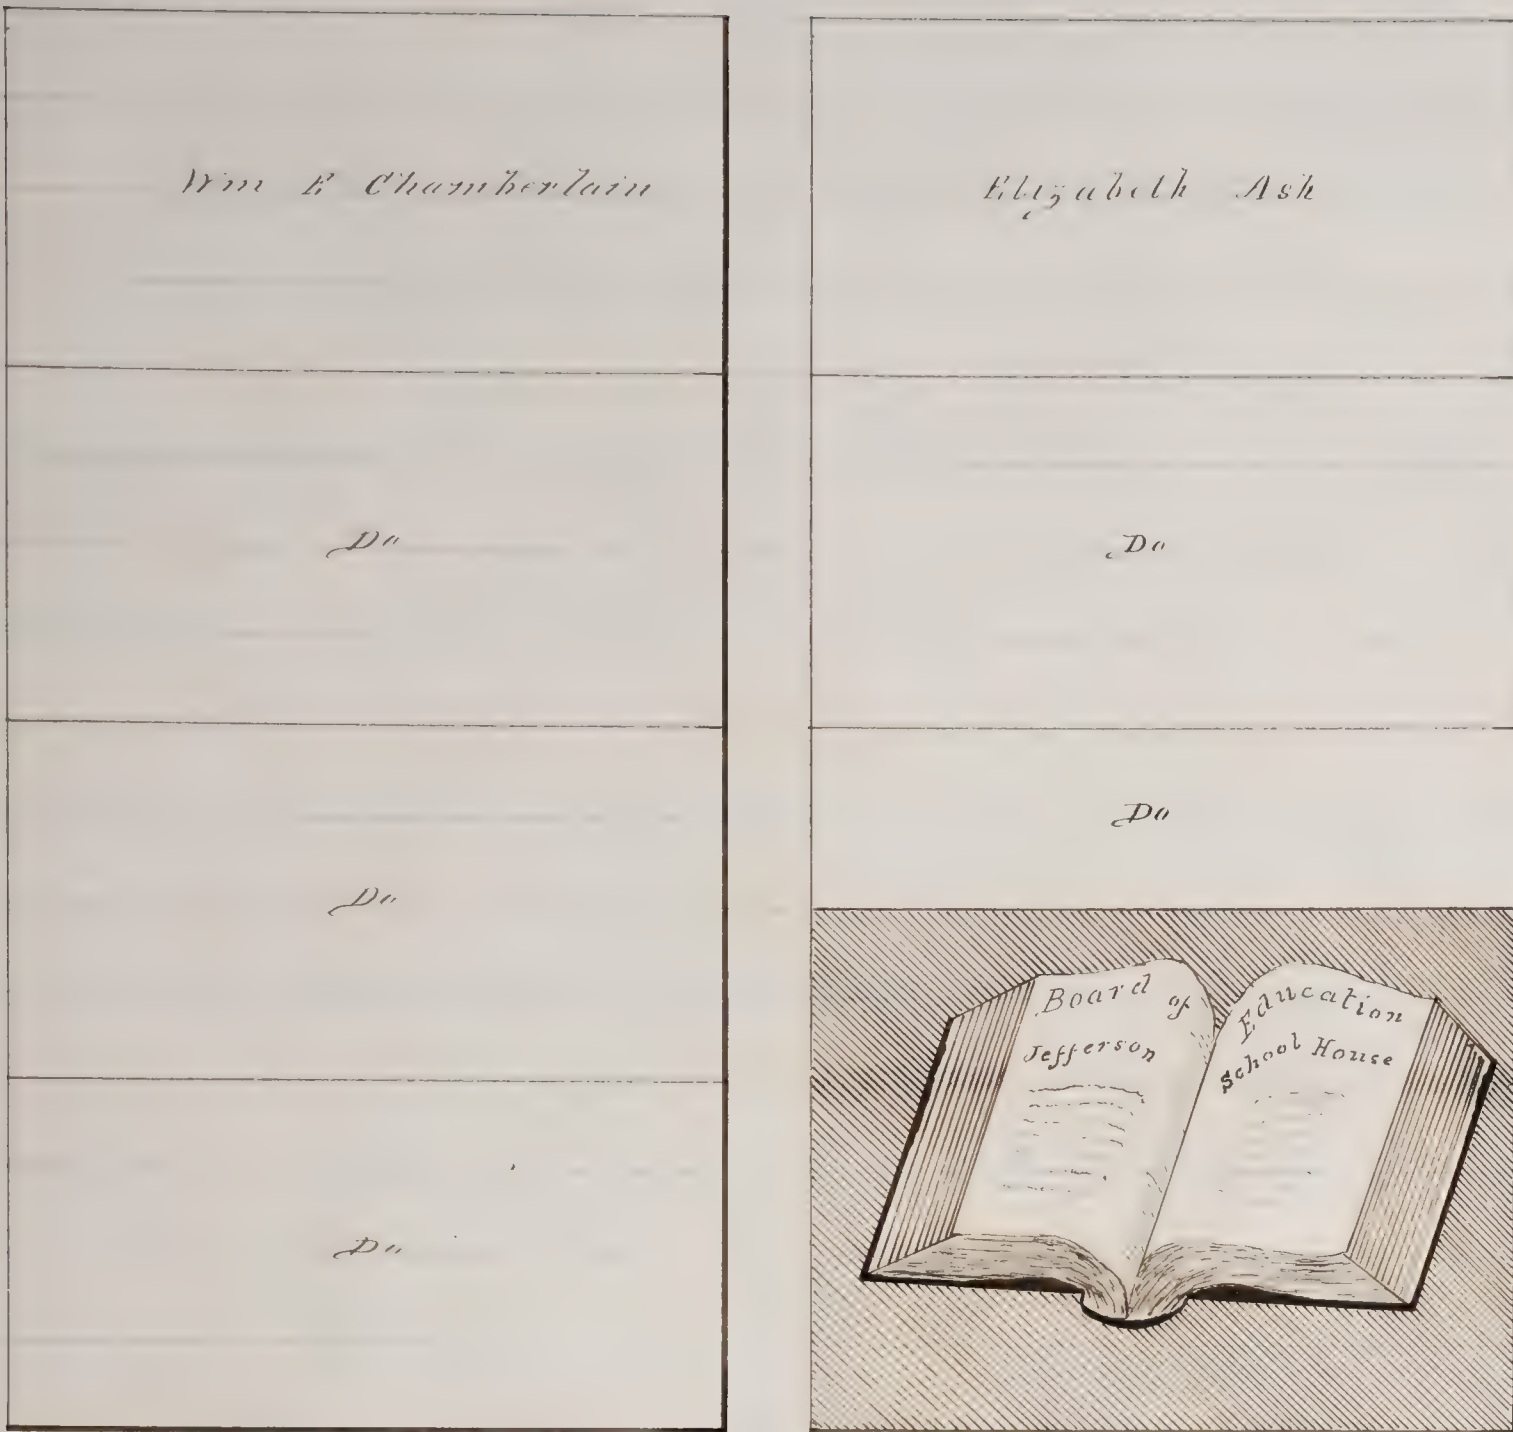 Wm E Chamberlain
Do
Do
Do
Elizabeth Ash
Do
Do
Board of Education
Jefferson School House